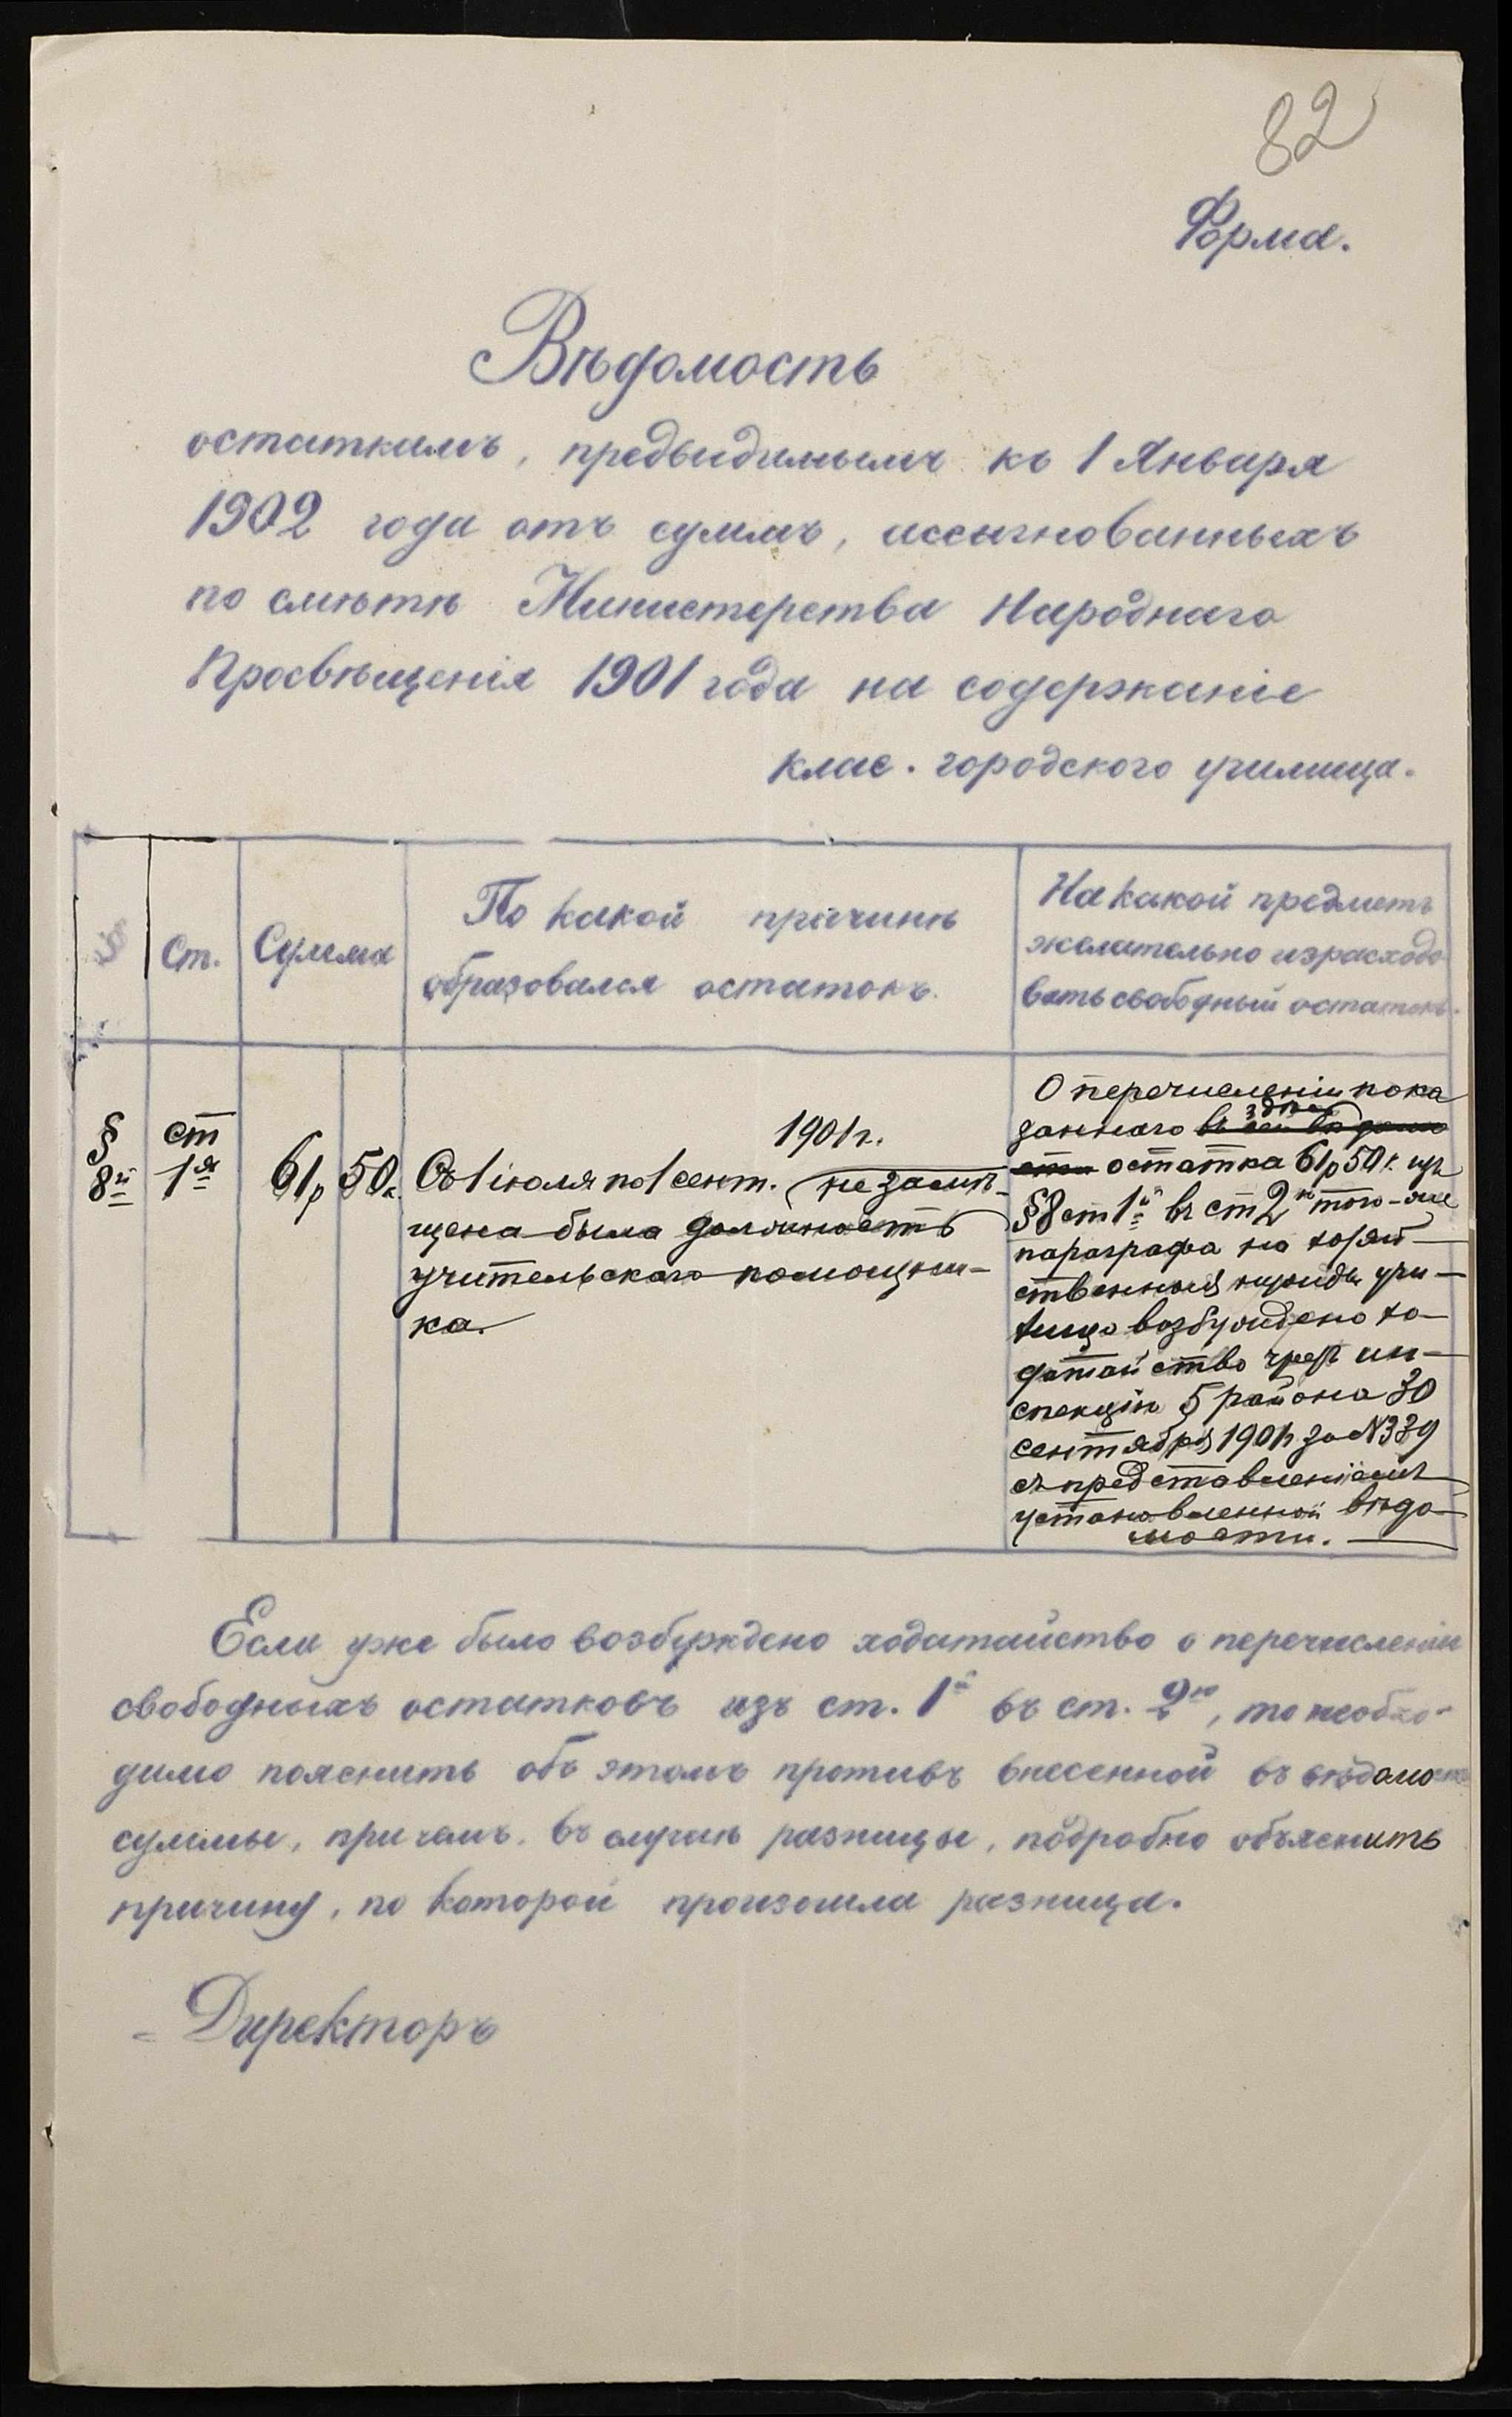 82
Форма.
Вѣдомость
остаткамъ, предвидимымъ къ 1 Января
1902 года отъ суммъ, ассигнованныхъ
по смѣтѣ Министерства Народнаго
Просвѣщенія 1901 года на содержаніе
клас. городского училища.
§
Ст.
Сумма
По какой причинѣ
образовался остатокъ.
На какой предметъ
желательно израсходо
вать свободный остатокъ.
§
8й
ст
1я
61р
50к.
1901г.
Съ 1 іюля по 1 сент. не замѣ-
щена была должность
учительскаго помощни-
ка.
О перечисленіи пока
здѣсь
заннаго въ сей вѣдомо
сти остатка 61р 50к. изъ
§ 8 ст 1й въ ст 2ю того-же
параграфа на хозяй-
ственныя нужды учи-
лища возбуждено хо-
датайство чрезъ ин-
спекцію 5 района 30
сентября 1901г. за №339
съ представленіемъ
установленной вѣдо-
мости.
Если уже было возбуждено ходатайство о перечисленіи
свободныхъ остатковъ изъ ст. 1й въ ст. 2ю, то необхо-
димо пояснить объ этомъ противъ внесенной въ вѣдомость
суммы, причемъ, въ случаѣ разницы, подробно объяснить
причину, по которой произошла разница.
Директоръ